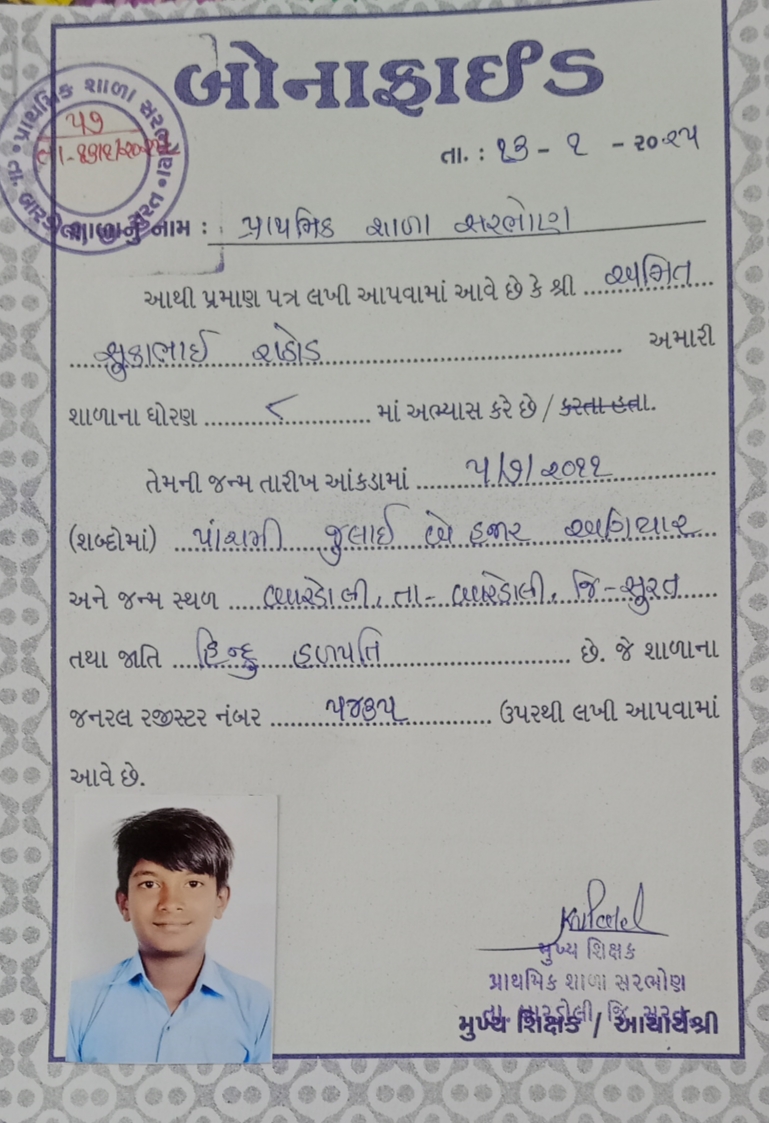 બોનાફાઈડ
પ્રાથમિક શાળા સરભોણ
તા. બારડોલી, જી. સુરત
૫૭
તા.: ૧૩ - ૧ - ૨૦૨૫
શાળાનું નામ : પ્રાથમિક શાળા સરભોણ
આથી પ્રમાણ પત્ર લખી આપવામાં આવે છે કે શ્રી અમિત
સુકાભાઈ રાઠોડ અમારી
શાળાના ધોરણ ૮ માં અભ્યાસ કરે છે / કરતા હતા.
તેમની જન્મ તારીખ આંકડામાં ૫/૭/૨૦૧૧
(શબ્દોમાં) પાંચમી જુલાઈ બે હજાર અગિયાર
અને જન્મ સ્થળ બારડોલી, તા- બારડોલી, જિ-સુરત
તથા જાતિ હિન્દુ હળપતિ છે. જે શાળાના
જનરલ રજીસ્ટર નંબર ૫૪૩૫ ઉપરથી લખી આપવામાં
આવે છે.
મુખ્ય શિક્ષક
પ્રાથમિક શાળા સરભોણ
તા. બારડોલી, જિ. સુરત
મુખ્ય શિક્ષક / આચાર્યશ્રી